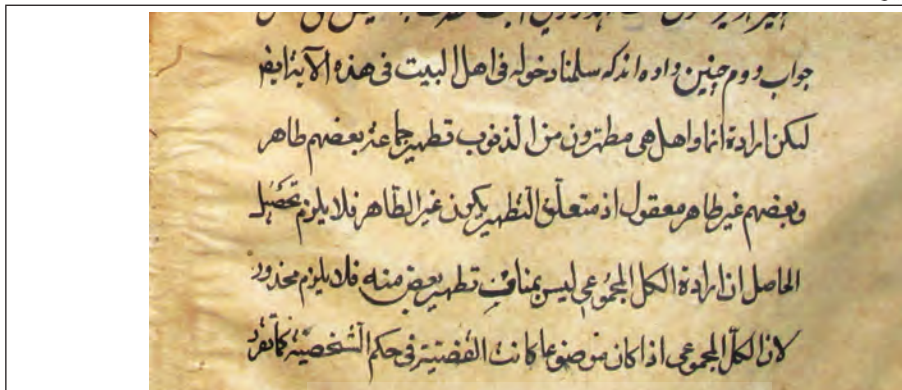 جواب دوم چنین داده اند که سلمنا دخوله فی اهل البیت فی هذه الآیة ایضا
لیکن ارادة انا واهلی مطهرون من الذنوب تطهیر جماعة بعضهم طاهر
وبعضهم غیر طاهر معقول اذ متعلق التطهیر یکون غیر الطاهر فلا یلزم تحصیل
الحاصل ان ارادة الکل المجموعی لیس بمناف تطهیر بعض منه فلا یلزم محذور
لان الکل المجموعی اذا کان موضوعا کانت القضیة فی حکم الشخصیة کما تقرر